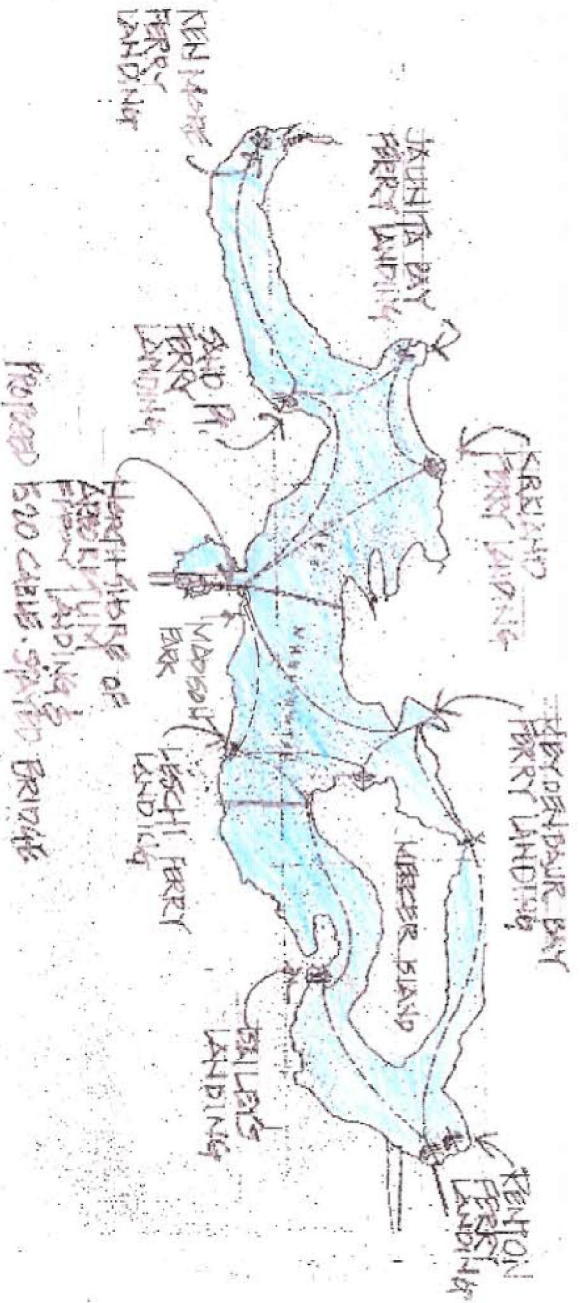 KENMORE
FERRY
LANDING
JAUNITA BAY
FERRY LANDING
SAND PT.
FERRY
LANDING
KIRKLAND
FERRY LANDING
NORTH SHORE OF
ARBORETUM
FERRY LANDING &
PROPOSED 520 CABLE-STAYED BRIDGE
MADISON
PARK
LESCHI FERRY
LANDING
MEYDENBAUR BAY
FERRY LANDING
MERCER ISLAND
BAILEY'S
LANDING
RENTON
FERRY
LANDING